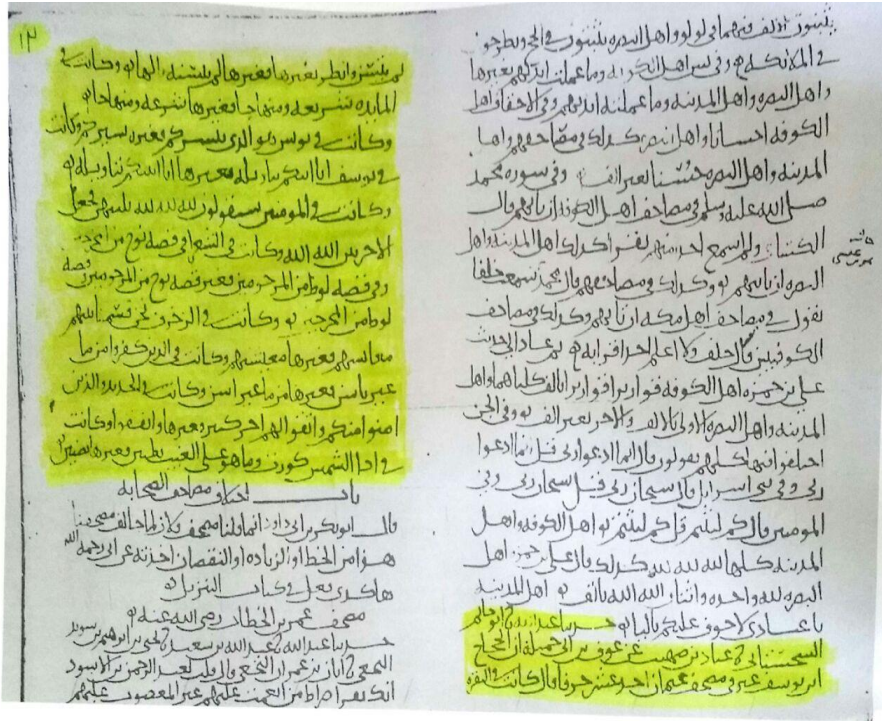 يثبتون الالف فيهما في لولو واهل البصره يثبتون في الحج ويطرحون
في الملائكه ه وفي يس اهل الكوفه وما عملت ايديهم بغير ها
واهل البصره واهل المدينه وما عملته ايديهم وفي الاحقاف اهل
الكوفه احسانا واهل كذلك في مصاحفهم واهل
المدينه واهل البصره حسنا بغير الف وفي سوره محمد
صلى الله عليه وسلم في مصاحف اهل الكوفه ان تاتهم قال
الكسائي ولم اسمع احد منهم يقرا كذلك اهل المدينه واهل
البصره ان تاتيهم وكذلك في مصاحفهم قال محمد سمعت خلفا
يقول في مصاحف اهل مكه ان تاتهم وكذلك في مصاحف
الكوفيين قال خلف ولا اعلم احدا قرا به ه ثم عاد الى حديث
علي بن حمزه اهل الكوفه قواريرا قواريرا بالف كلتاهما واهل
المدينه واهل البصره الاولى بالالف والاخر بغير الف وفي الجن
اختلفوا فيها كلهم يقولون قال انما ادعوا ربي قل انما ادعوا
ربي وفي بني اسرايل قال سبحان ربي قل سبحان ربي وفي
المومنين قال كم لبثتم قل كم لبثتم ه اهل الكوفه واهل
المدينه كلها لله لله لله كذلك قال علي بن حمزه اهل
البصره لله واحده واثنتان الله الله بالف ه اهل المدينه
يا عبادي لا خوف عليكم باليا ه حدثنا عبد الله ثنا ابو حاتم
السجستاني ثنا عباد بن صهيب عن عوف بن ابي جميله ان الحجاج
ابن يوسف غير في مصحف عثمان احد عشر حرفا قال كانت في البقره
١٢
لم يتسن وانظر بغير ها فغيرها لم يتسنه بالها ه وكانت في
المايده شريعه ومنهاجا فغيرها شرعه ومنهاجا ه
وكانت في يونس هو الذي ينشركم فغيره يسيركم وكانت
في يوسف انا اتيكم بتاويله فغيرها انا انبيكم بتاويله ه
وكانت في المومنين سيقولون لله لله لله ثلثتهن فجعل
الاخريين الله الله وكانت في الشعرا في قصه نوح من المخرجين
وفي قصه لوط من المرجومين فغير قصه نوح من المرجومين وقصه
لوط من المخرجين ه وكانت في الزخرف نحن قسمنا بينهم
معايشهم فغيرها معيشتهم وكانت في الذين كفروا من ما
غير ياسن فغيرها من ما غير اسن وكانت في الحديد والذين
امنوا منكم واتقوا لهم اجر كبير فغيرها وانفقوا وكانت
في اذا الشمس كورت وما هو على الغيب بظنين فغيرها بضنين ه
باب اختلاف مصاحف الصحابه
قال ابو بكر بن ابي داود انما قلنا مصحف فلان لما خالف مصحفنا
هذا من الخط او الزياده او النقصان اخذته عن ابي رحمه الله
هكذا فعل في كتاب التنزيل ه
مصحف عمر بن الخطاب رضي الله عنه ه
حدثنا عبد الله ثنا عبد الله بن سعيد ثنا يحيى بن ابرهيم بن سويد
النخعي ثنا ابان بن عمران النخعي قال قلت لعبد الرحمن بن الاسود
انك تقرا صراط من انعمت عليهم غير المغضوب عليهم